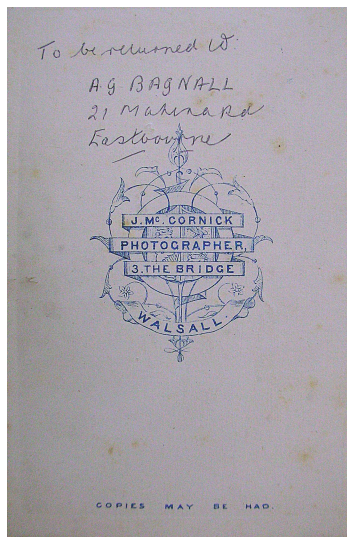 To be returned to
A.G BAGNALL
21 Mahina Rd
Eastbourne
J. Mc. CORNICK
PHOTOGRAPHER,
3. THE BRIDGE
WALSALL.
COPIES MAY BE HAD.